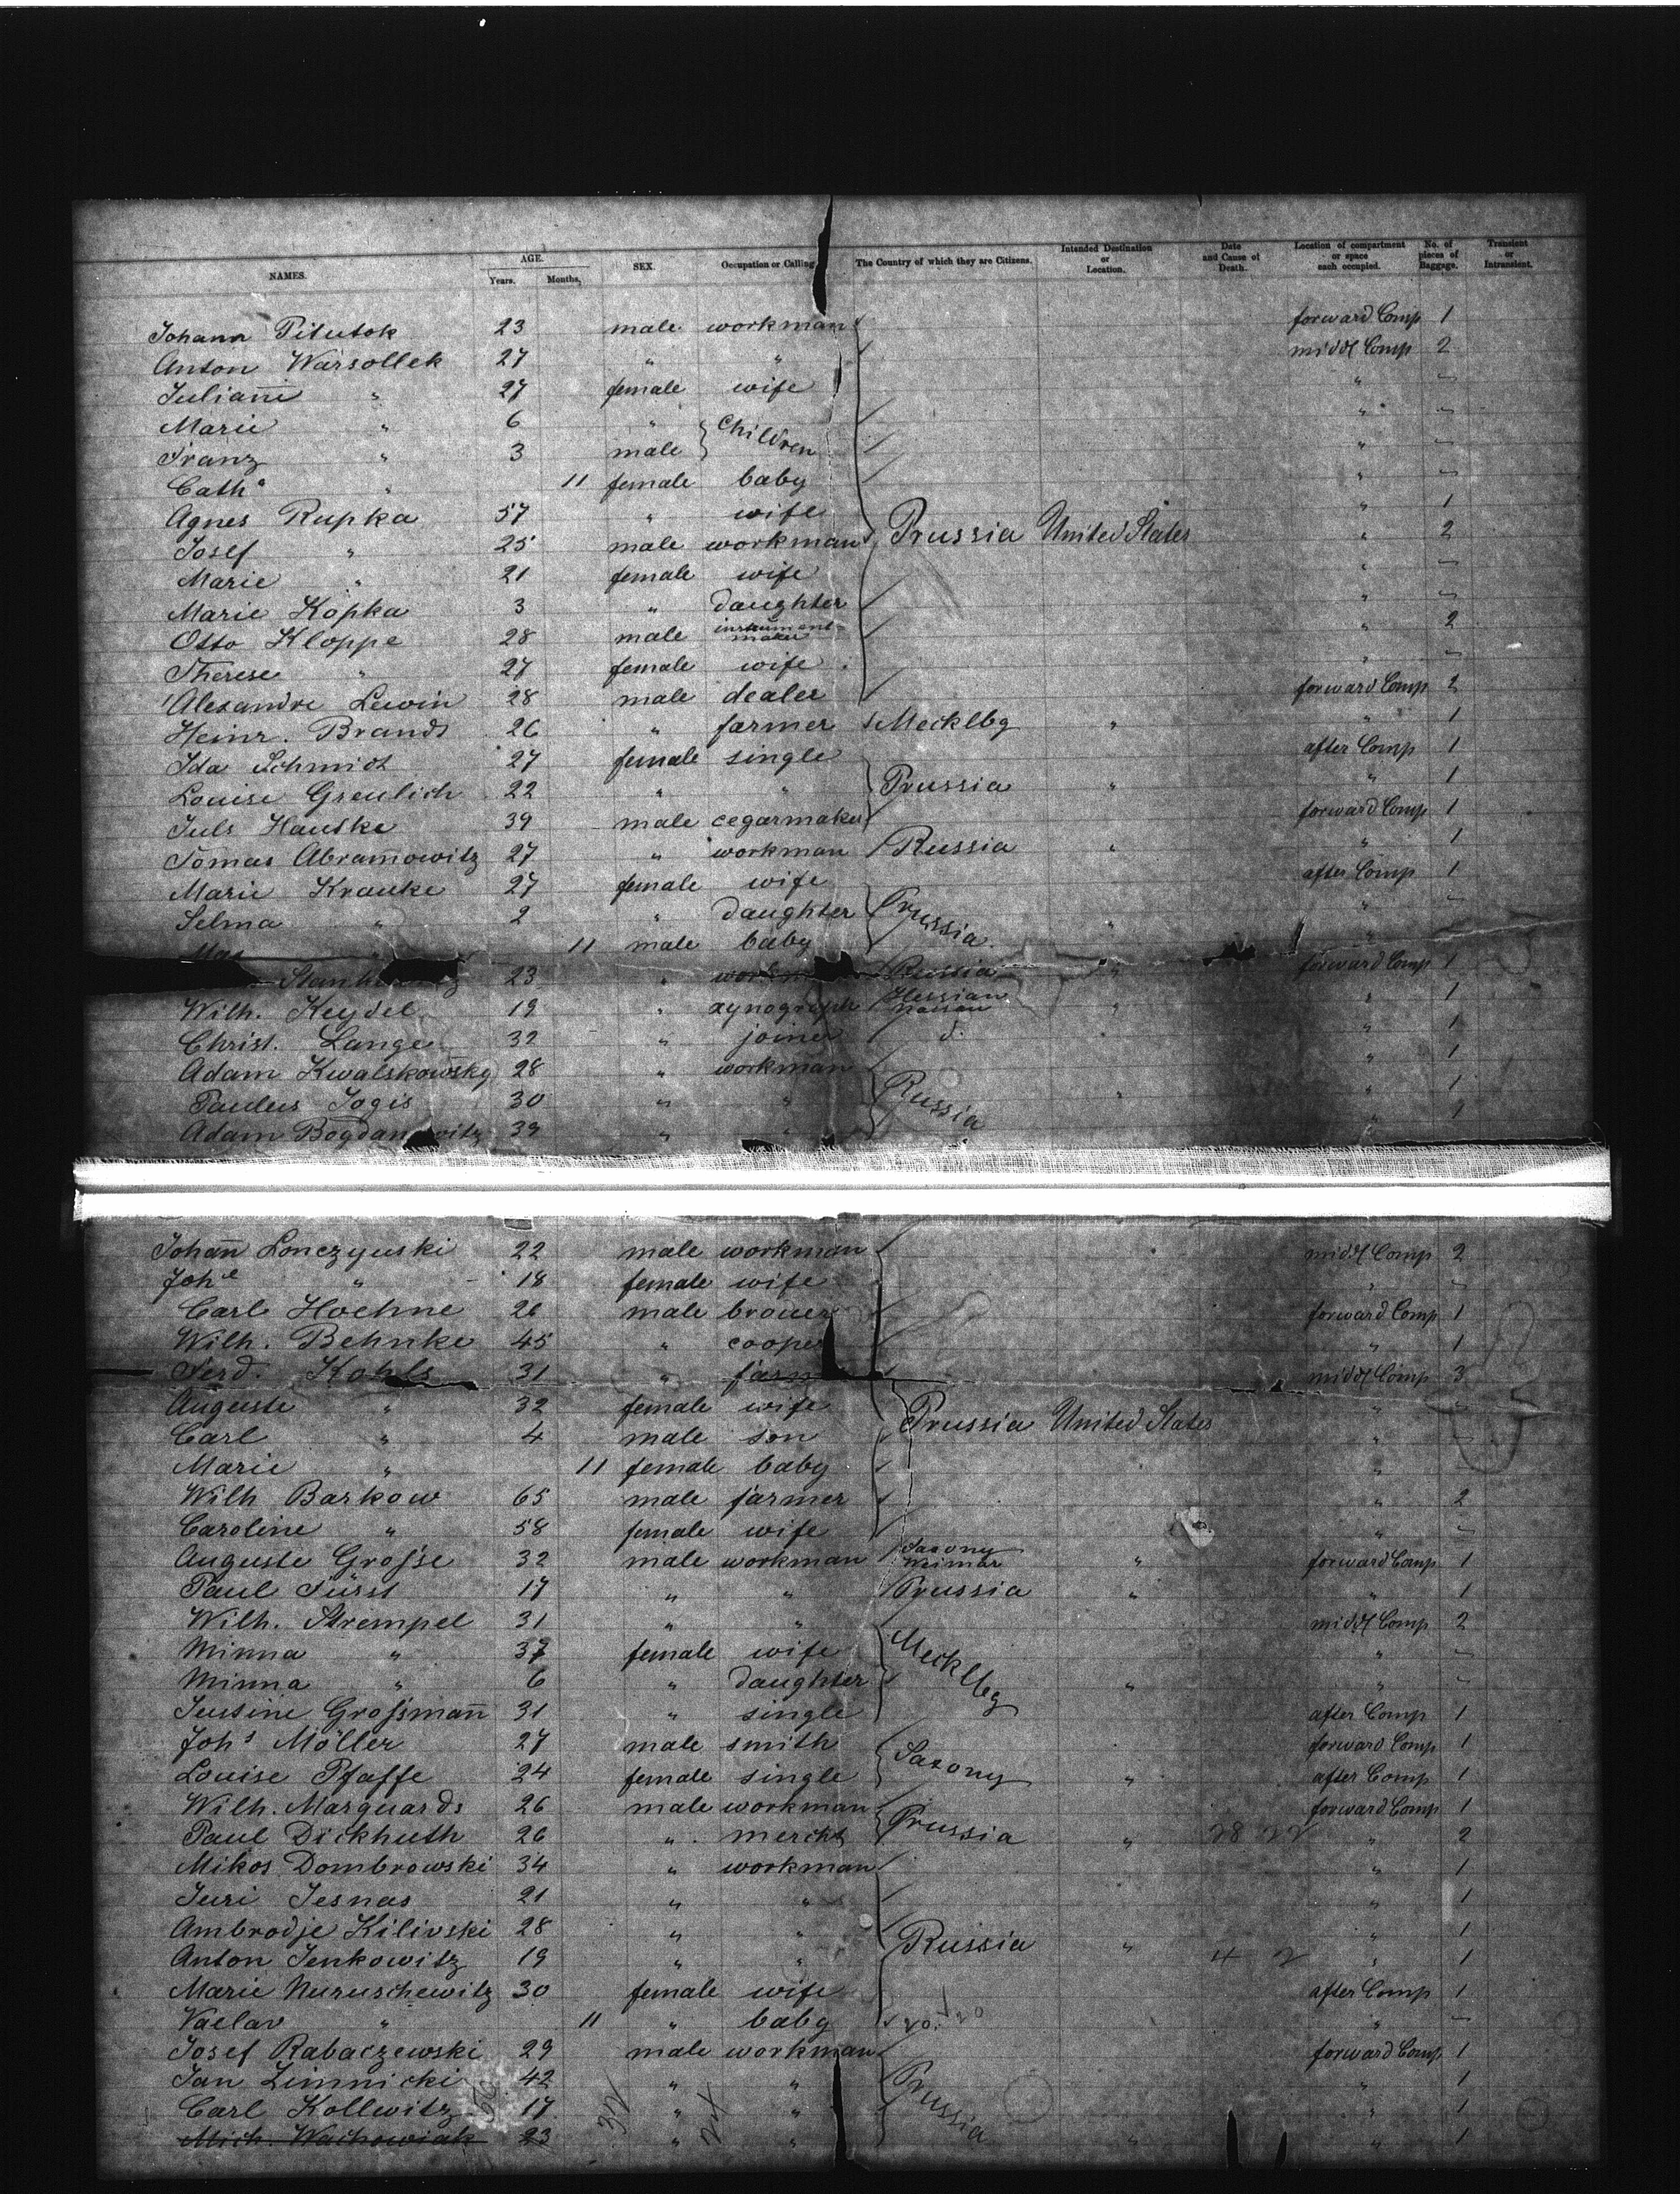 NAMES. AGE. Years. Months. SEX. Occupation or Calling The Country of which they are Citizens. Intended Destination or Location. Date and Cause of Death. Location of compartment or space each occupied. No. of pieces of Baggage. Transient or Intransient.
Johann Pitutok 23 male workman forward Comp 1
Anton Warsollek 27 " " middl Comp 2
Juliann̄ " 27 female wife " "
Marie " 6 " Children " "
Franz " 3 male " "
Cathᵃ " 11 female baby " "
Agnes Rupka 57 " wife " 1
Josef " 25 male workman Prussia United States " 2
Marie " 21 female wife " "
Marie Kopka 3 " daughter " "
Otto Kloppe 28 male instrument-maker " 2
Therese " 27 female wife " "
Alexandre Lewin 28 male dealer forward Comp 2
Heinr. Brandt 26 " farmer Mecklbg " " 1
Ida Schmidt 27 female single after Comp 1
Louise Greulich 22 " " Prussia " " 1
Juls Hauske 39 male cegarmaker forward Comp 1
Tomas Abram̄owitz 27 " workman Russia " " 1
Marie Krauke 27 female wife after Comp 1
Selma " 2 " daughter Prussia " " "
Max " 11 male baby "
23 " Russia " forward Comp 1
Wilh. Keydel 19 " xynograph Hessian Nassau " " 1
Christ. Lange 32 " joiner d. " 1
Adam Kwalskowsky 28 " workman " 1
Paulus Jogis 30 " " Russia " " 1
Adam Bogdanowitz 39 " " " 1
Johan̄ Lonczynski 22 male workman " middl Comp 2
Johᵉ " 18 female wife " "
Carl Hoehne 26 male brouer forward Comp 1
Wilh. Behnke 45 " cooper " 1
Ferd. Kohls 31 " farm middl Comp 3
Auguste " 32 female wife " "
Carl " 4 male son Prussia United States " "
Marie " 11 female baby " "
Wilh Barkow 65 male farmer " 2
Caroline " 58 female wife " "
Auguste Grosse 32 male workman Saxony Weimar " forward Comp 1
Paul Fürst 17 " " Prussia " " 1
Wilh. Strempel 31 " " middl Comp 2
Minna " 37 female wife Mecklbg " "
Minna " 6 " daughter " " "
Justine Grossman̄ 31 " single after Comp 1
Johˢ Möller 27 male smith Saxony forward Comp 1
Louise Pfaffe 24 female single " after Comp 1
Wilh. Marquards 26 male workman forward Comp 1
Paul Dickhuth 26 " mercht Prussia " 28 22 " 2
Mikos Dombrowski 34 " workman " 1
Juri Jesnas 21 " " " 1
Ambrodje Kilivski 28 " " " 1
Anton Jenkowitz 19 " " Russia " 4 2 " 1
Marie Nuruschewitz 30 female wife after Comp 1
Vaclav " 11 " baby 20. 20 " "
Josef Rabaczewski 29 male workman forward Comp 1
Jan Zimnicki 42 " " " 1
Carl Kollwitz 17 " " Prussia " 1
Mich. Wachowiak 23 " " " " 1